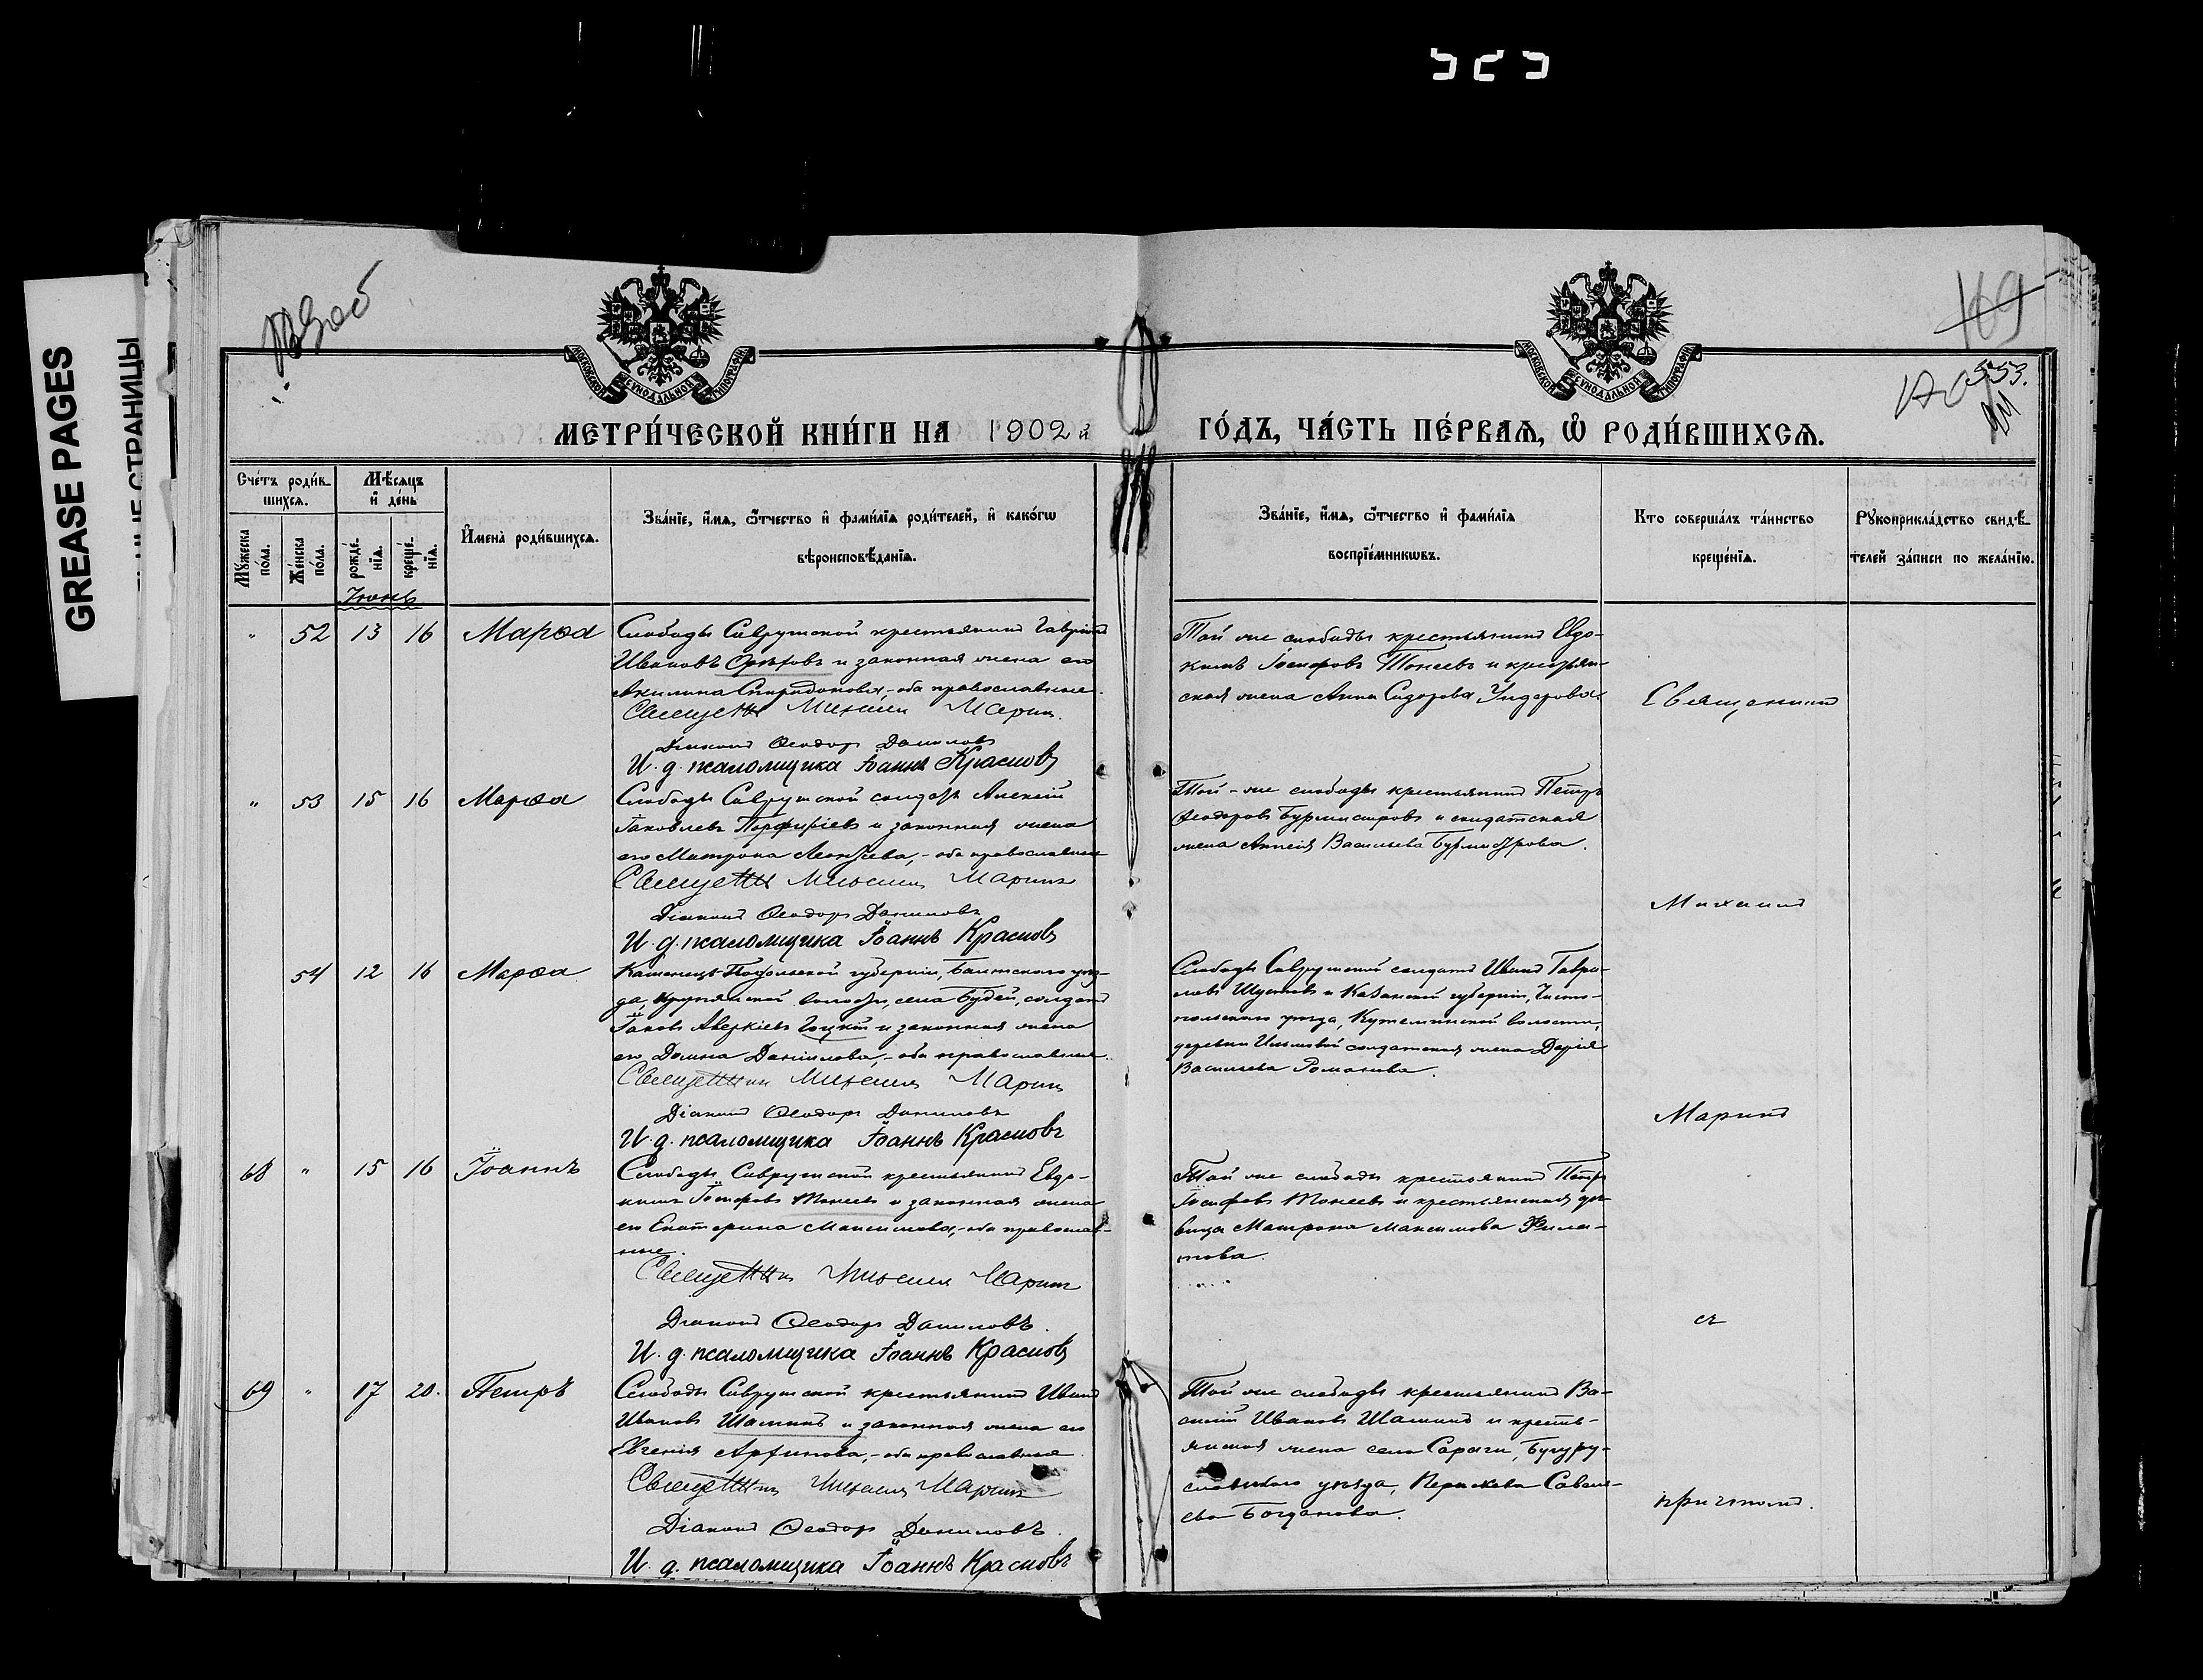 GREASE PAGES
169
553.
МЕТРИ́ЧЕСКОЙ КНИ́ГИ НА 1902 й ГО́ДЪ, ЧА́СТЬ ПЕ́РВАѦ, Ѡ РОДИ́ВШИХСѦ.
МОСКОВСКОЙ СѴНОДАЛЬНОЙ ТИПОГРАФІИ
МОСКОВСКОЙ СѴНОДАЛЬНОЙ ТИПОГРАФІИ
Сче́тъ роди́в-
шихсѧ.
Мꙋ́жеска по́ла.
Же́нска по́ла.
Мѣ́сѧцъ
и҆ де́нь
рожде́-нїѧ.
креще́-нїѧ.
И҆мена̀ роди́вшихсѧ.
Зва́нїе, и҆́мѧ, ѻ҆́тчество и҆ фами́лїѧ роди́телей, и҆ како́гѡ
вѣроисповѣ́данїѧ.
Зва́нїе, и҆́мѧ, ѻ҆́тчество и҆ фами́лїѧ
воспрїе́мникѡвъ.
Кто соверша́лъ та́инство
креще́нїѧ.
Рꙋкоприкла́дство свидѣ́-
телей за́писи по жела́нїю.
Іюнь
" 52 13 16 Марѳа
Слободы Саврушской крестьянинъ Гавріилъ
Ивановъ Орѣховъ и законная жена его
Акилина Спиридонова,-оба православные.
Священникъ Михаилъ Маринъ
Діаконъ Ѳеодоръ Даниловъ
И. д. псаломщика Іоаннъ Красновъ
Той же слободы крестьянинъ Евдо-
кимъ Іосифовъ Тонеевъ и крестьян-
ская жена Анна Сидорова
" 53 15 16 Марѳа
Слободы Саврушской солдатъ Алексій
Іаковлевъ Порфиріевъ и законная жена
его Матрона Леонтьева,-оба православные
Священникъ Михаилъ Маринъ
Діаконъ Ѳеодоръ Даниловъ
И. д. псаломщика Іоаннъ Красновъ
Той-же слободы крестьянинъ Петръ
Ѳеодоровъ Бурмистровъ и солдатская
жена Васильева Бурмистрова.
54 12 16 Марѳа
Каменецъ-Подольской губерніи, Балтскаго уѣз-
да, волости, села Будей, солдатъ
Іаковъ Аверкіевъ Гоцкій и законная жена
его Домна Даніилова,-оба православные.
Священникъ Михаилъ Маринъ
Діаконъ Ѳеодоръ Даниловъ
И. д. псаломщика Іоаннъ Красновъ
Слободы Саврушской солдатъ Иванъ Гаври-
ловъ Шустовъ и Казанской губерніи, Чисто-
польскаго уѣзда, волости,
деревни солдатская жена Дарія
Васильева Романова.
68 " 15 16 Іоаннъ
Слободы Саврушской крестьянинъ Евдо-
кимъ Іосифовъ Тонеевъ и законная жена
его Екатерина Максимова,-оба православ-
ные.
Священникъ Михаилъ Маринъ
Діаконъ Ѳеодоръ Даниловъ.
И. д. псаломщика Іоаннъ Красновъ
Той же слободы крестьянинъ Петръ
Іосифовъ Тонеевъ и крестьянская дѣ-
вица Матрона Максимова Фила-
това.
69 " 17 20. Петръ
Слободы Саврушской крестьянинъ Иванъ
Ивановъ Шаминъ и законная жена его
Евгенія,-оба православные
Священникъ Михаилъ Маринъ
Діаконъ Ѳеодоръ Даниловъ.
И. д. псаломщика Іоаннъ Красновъ
Той же слободы крестьянинъ Ва-
силій Ивановъ Шаминъ и кресть-
янская жена села Бугуру-
сланскаго уѣзда, Савель-
ева Богданова.
Священникъ
Михаилъ
Маринъ
съ
причтомъ.